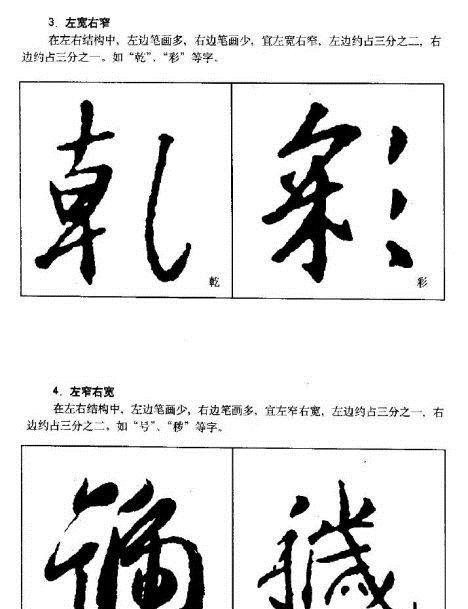 3. 左宽右窄
在左右结构中，左边笔画多，右边笔画少，宜左宽右窄，左边约占三分之二，右
边约占三分之一。如“乾”、“彩”等字。
乾 彩
乾
彩
4. 左窄右宽
在左右结构中，左边笔画少，右边笔画多，宜左窄右宽，左边约占三分之一，右
边约占三分之二。如“号”、“秽”等字。